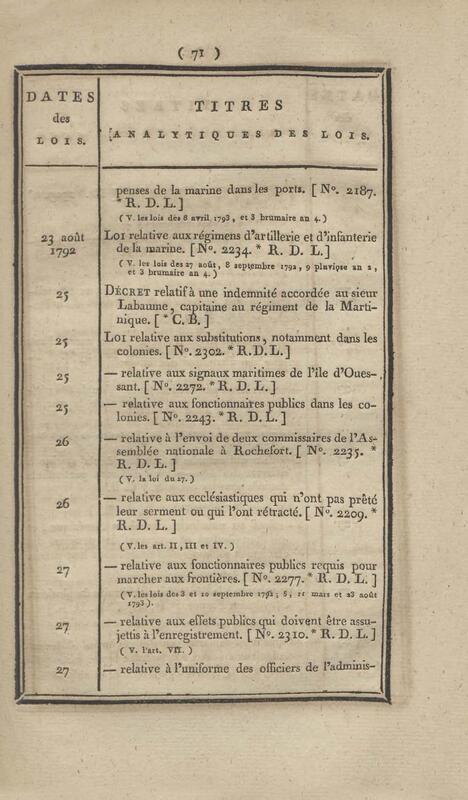 ( 71 )
DATES
des
LOIS.
TITRES
ANALYTIQUES DES LOIS.
penses de la marine dans les ports. [ N°. 2187.
* R. D. L.]
( V. les lois des 8 avril 1793, et 3 brumaire an 4. )
23 août
1792
LOI relative aux régimens d'artillerie et d'infanterie
de la marine. [N°. 2234. * R. D. L.]
( V. les lois des 27 août, 8 septembre 1792, 9 pluviose an 2,
et 3 brumaire an 4. )
25
DÉCRET relatif à une indemnité accordée au sieur
Labaume, capitaine au régiment de la Marti-
nique. [ * C. B. ]
25
LOI relative aux substitutions, notamment dans les
colonies. [ N°. 2302. * R. D. L. ]
25
— relative aux signaux maritimes de l'île d'Oues-
sant. [ N°. 2272. * R. D. L. ]
25
— relative aux fonctionnaires publics dans les co-
lonies. [ N°. 2243. * R. D. L. ]
26
— relative à l'envoi de deux commissaires de l'As-
semblée nationale à Rochefort. [ N°. 2235. *
R. D. L. ]
( V. la loi du 27. )
26
— relative aux ecclésiastiques qui n'ont pas prêté
leur serment ou qui l'ont rétracté. [ N°. 2209. *
R. D. L. ]
( V. les art. II, III et IV. )
27
— relative aux fonctionnaires publics requis pour
marcher aux frontières. [ N°. 2277. * R. D. L. ]
( V. les lois des 3 et 10 septembre 1792; 5, 11 mars et 23 août
1793 ).
27
— relative aux effets publics qui doivent être assu-
jettis à l'enregistrement. [ N°. 2310. * R. D. L. ]
( V. l'art. VII. )
27
— relative à l'uniforme des officiers de l'adminis-